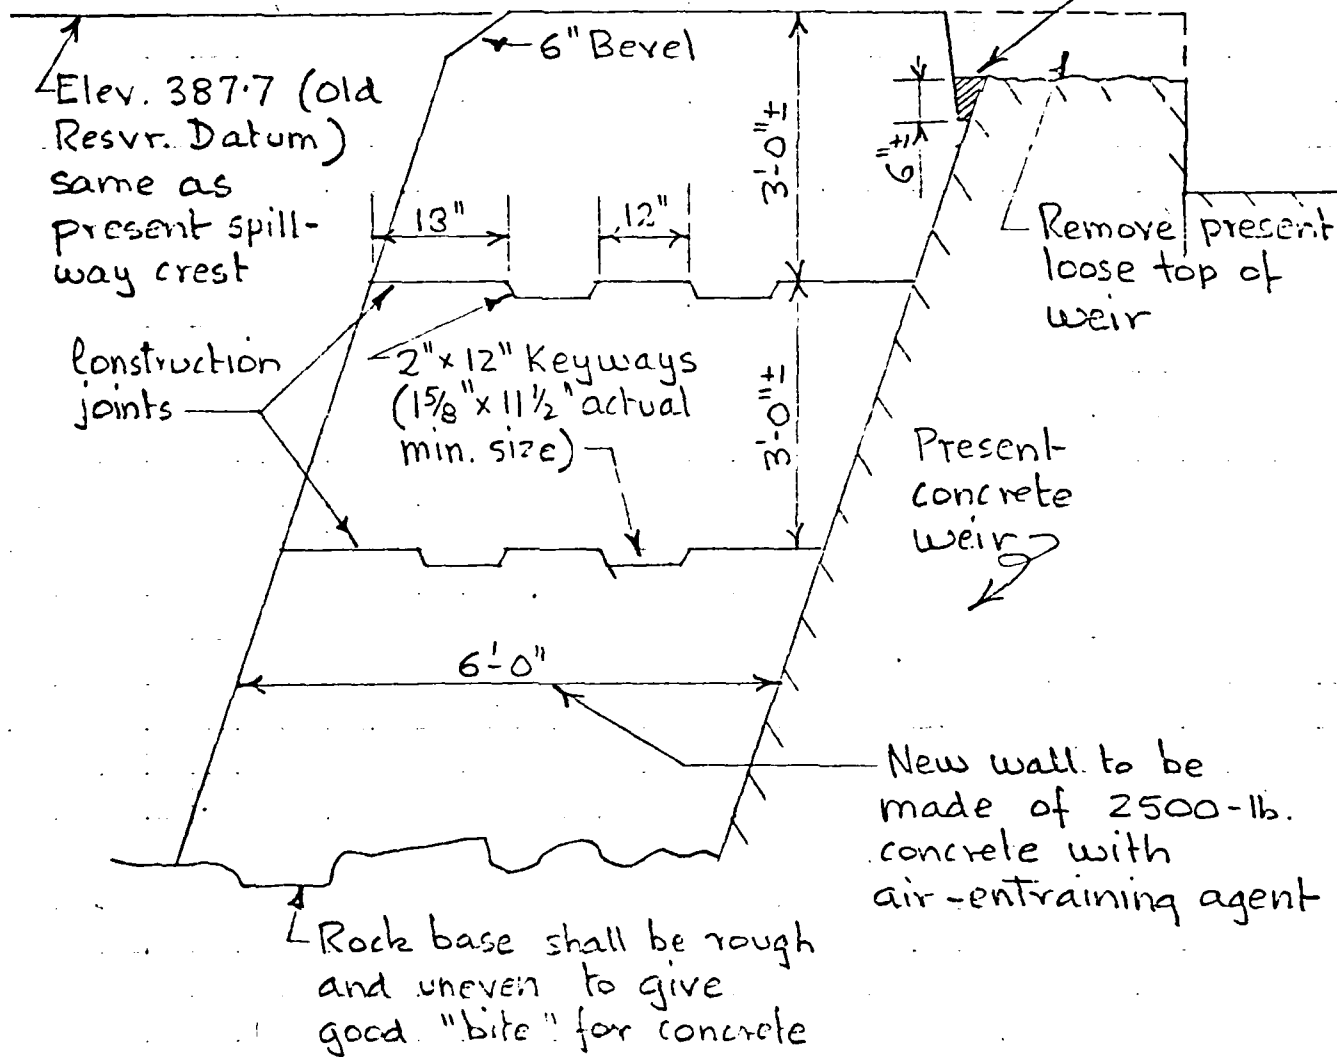 6" Bevel
Elev. 387.7 (Old
Resvr. Datum)
same as
present spill-
way crest
3'-0"±
6"±
13"
12"
Remove present
loose top of
weir
Construction
joints
2" x 12" Keyways
(1 5/8" x 11 1/2" actual
min. size)
3'-0"±
Present
concrete
weir
6'-0"
New wall to be
made of 2500-lb.
concrete with
air-entraining agent
Rock base shall be rough
and uneven to give
good "bite" for concrete